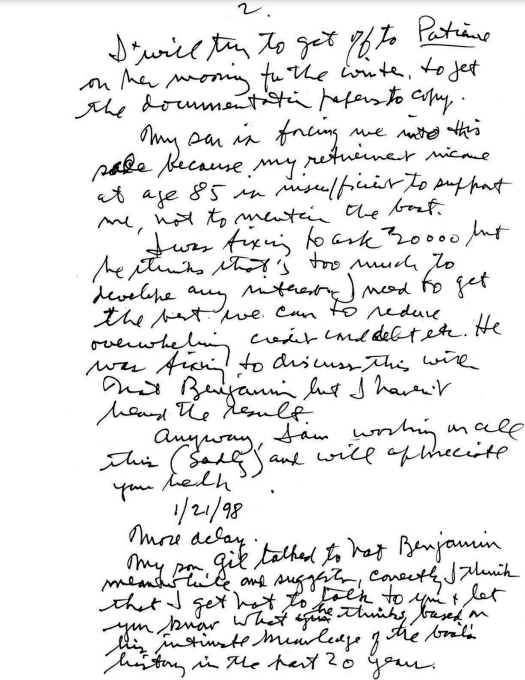 2.
I will try to get off to Patience
on her mooring for the winter, to get
the documentation papers to copy.
My son is forcing me into this
sale because my retirement income
at age 85 is insufficient to support
me, not to mention the boat.
I was fixing to ask 30000 but
he thinks that's too much to
develope any interest. I need to get
the best we can to reduce
overwhelming credit card debt etc. He
was fixing to discuss this with
Nat Benjamin but I haven't
heard the results
Anyway, I am working on all
this (sadly) and will appreciate
your help.
1/21/98
More delay.
My son Gil talked to Nat Benjamin
meanwhile and suggests, correctly I think
that I get Nat to talk to you & let
you know what he thinks, based on
his intimate knowledge of the boat's
history in the past 20 years.